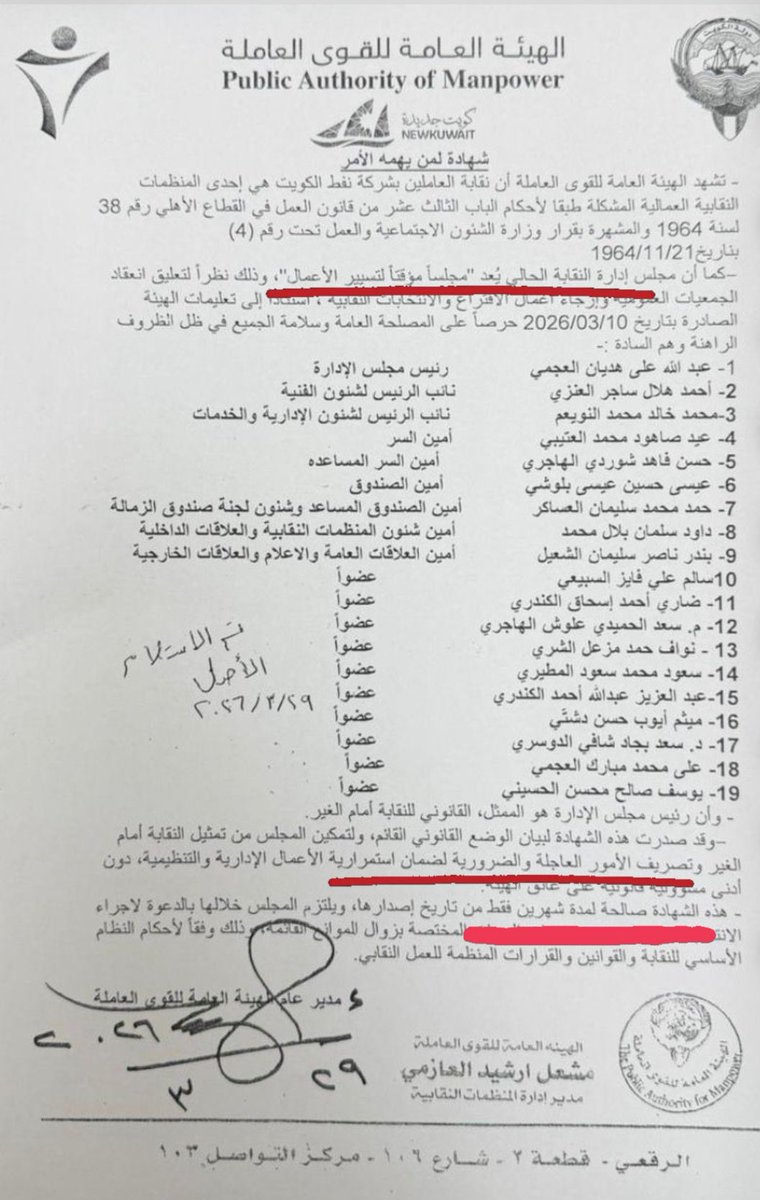 الهيئة العامة للقوى العاملة
Public Authority of Manpower
دولة الكويت
كويت جديدة
NEWKUWAIT
شهادة لمن يهمه الأمر
- تشهد الهيئة العامة للقوى العاملة أن نقابة العاملين بشركة نفط الكويت هي إحدى المنظمات
النقابية العمالية المشكلة طبقا لأحكام الباب الثالث عشر من قانون العمل في القطاع الأهلي رقم 38
لسنة 1964 والمشهرة بقرار وزارة الشئون الاجتماعية والعمل تحت رقم (4)
بتاريخ 1964/11/21
-كما أن مجلس إدارة النقابة الحالي يُعد "مجلساً مؤقتاً لتسيير الأعمال"، وذلك نظراً لتعليق انعقاد
الجمعيات العمومية وإرجاء أعمال الاقتراع والانتخابات النقابية ، استناداً إلى تعليمات الهيئة
الصادرة بتاريخ 2026/03/10 حرصاً على المصلحة العامة وسلامة الجميع في ظل الظروف
الراهنة وهم السادة :-
1- عبد الله على هديان العجمي رئيس مجلس الإدارة
2- أحمد هلال ساجر العنزي نائب الرئيس لشئون الفنية
3-محمد خالد محمد النويعم نائب الرئيس لشئون الإدارية والخدمات
4- عيد صاهود محمد العتيبي أمين السر
5- حسن فاهد شوردي الهاجري أمين السر المساعده
6- عيسى حسين عيسى بلوشي أمين الصندوق
7- حمد محمد سليمان العساكر أمين الصندوق المساعد وشنون لجنة صندوق الزمالة
8- داود سلمان بلال محمد أمين شئون المنظمات النقابية والعلاقات الداخلية
9- بندر ناصر سليمان الشعيل أمين العلاقات العامة والاعلام والعلاقات الخارجية
10سالم علي فايز السبيعي عضواً
11- ضاري أحمد إسحاق الكندري عضواً
12- م. سعد الحميدي علوش الهاجري عضواً
13 - نواف حمد مزعل الشري عضواً
14- سعود محمد سعود المطيري عضواً
15-عبد العزيز عبدالله أحمد الكندري عضواً
16- ميثم أيوب حسن دشتي عضواً
17- د. سعد بجاد شافي الدوسري عضواً
18- على محمد مبارك العجمي عضواً
19- يوسف صالح محسن الحسيني عضواً
تم الاستلام
الأصل
٢٠٢٦/٣/٢٩
- وأن رئيس مجلس الإدارة هو الممثل، القانوني للنقابة أمام الغير.
-وقد صدرت هذه الشهادة لبيان الوضع القانوني القائم، ولتمكين المجلس من تمثيل النقابة أمام
الغير وتصريف الأمور العاجلة والضرورية لضمان استمرارية الأعمال الإدارية والتنظيمية، دون
أدنى مسؤولية قانونية على عاتق الهيئة.
- هذه الشهادة صالحة لمدة شهرين فقط من تاريخ إصدارها، ويلتزم المجلس خلالها بالدعوة لاجراء
المختصة بزوال الموانع القائمة، وذلك وفقاً لأحكام النظام
الأساسي للنقابة والقوانين والقرارات المنظمة للعمل النقابي.
ء مدير عام الهيئة العامة للقوى العاملة
٢٩
٣
٢٠٢٦
الهيئة العامة للقوى العاملة
مشعل ارشيد العازمي
مدير إدارة المنظمات النقابية
الهيئة العامة للقوى العاملة
The Public Authority for Manpower
الرقعي - قطعة ٢ - شارع ١٠٦ - مركز التواصل ١٠٣